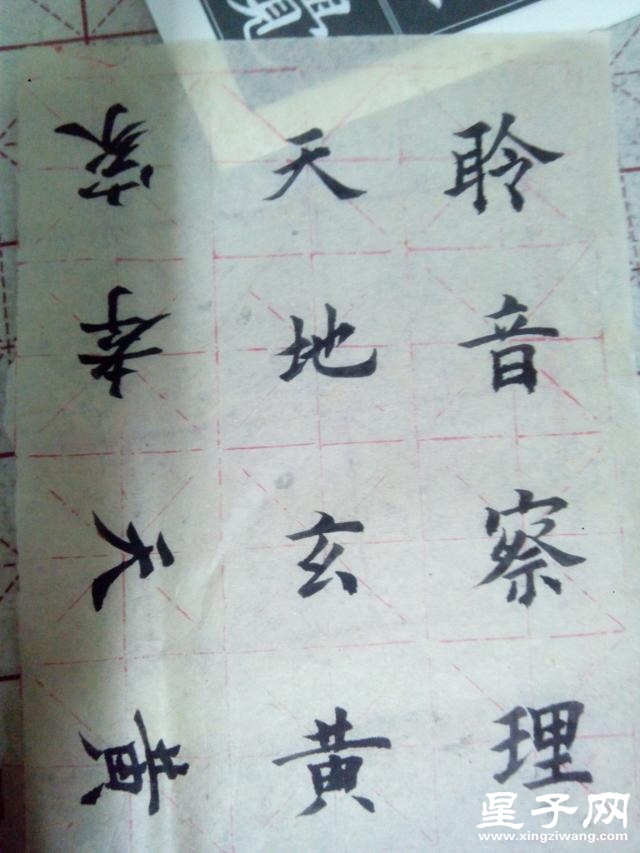 聆音察理
天地玄黄
家孝天黄
星子网
www.xingziwang.com